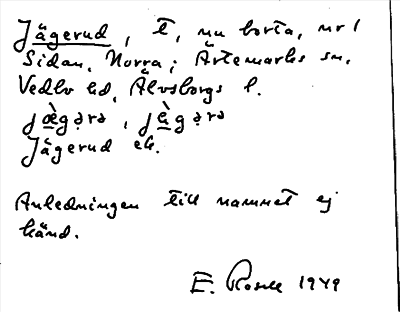 Jägerud, t, nu borta, nr 1
Sidan, Norra; Ärtemarks sn,
Vedbo hd, Älvsborgs l.
Jägerud ek.
Anledningen till namnet ej
känd.
E. 1949